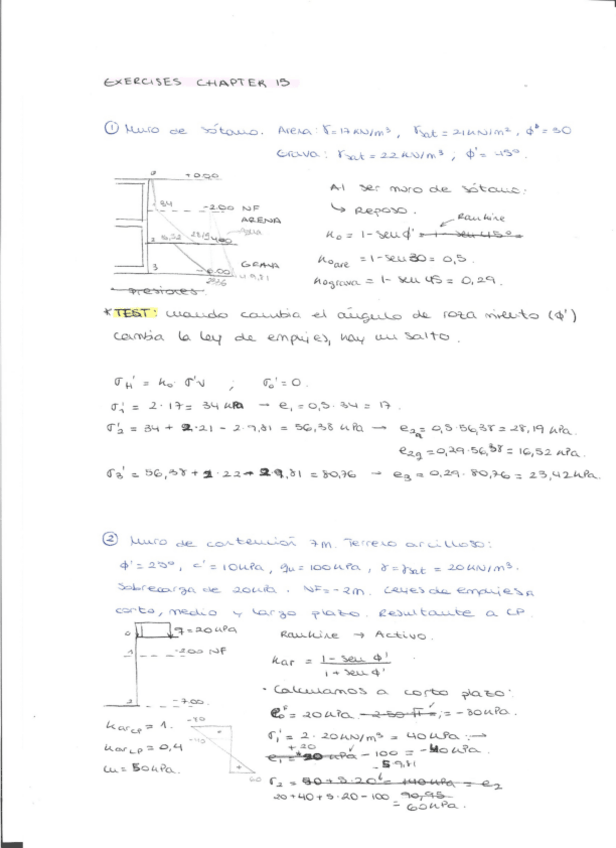 EXERCISES CHAPTER 15
① Muro de sótano. Arena: γ=17KN/m³, γsat=21KN/m², ϕ'=30
Grava: γsat=22KN/m³; ϕ'=45º
0 +0.00
34 -2.00 NF
ARENA
2 16,52 28,19 -4.00
GRAVA
3 -6.00
Presiones.
Al ser muro de sótano:
↳ Reposo.
Rankine
K₀ = 1-senϕ' = 1-sen45º=
K₀are = 1-sen30 = 0,5.
K₀grava = 1-sen45 = 0,29.
* TEST: cuando cambia el ángulo de rozamiento (ϕ')
cambia la ley de empujes, hay un salto.
σH' = K₀·σ'v ; σ₀' = 0.
σ₁' = 2·17 = 34 KPa → e₁ = 0,5·34 = 17.
σ₂' = 34 + 2·21 - 2·9,81 = 56,38 KPa → e₂a = 0,5·56,38 = 28,19 KPa.
e₂g = 0,29·56,38 = 16,52 KPa.
σ₃' = 56,38 + 2·22 - 2·9,81 = 80,76 → e₃ = 0,29·80,76 = 23,42 KPa.
② Muro de contención 7m. Terreno arcilloso:
ϕ'=25º, c'=10KPa, qu=100KPa, γ=γsat=20KN/m³.
Sobrecarga de 20KPa. NF=-2m. Leyes de empujes a
corto, medio y largo plazo. Resultante a CP.
0 q=20KPa
1 -2.00 NF
2 -7.00
Rankine → Activo.
Kar = 1-senϕ' / 1+senϕ'
• Calculamos a corto plazo:
KarCP = 1.
KarLP = 0,4
cu = 50KPa.
60
= 20KPa = -80KPa.
σ₁' = 2·20KN/m³ = 40KPa →
+20
-100 = -40KPa.
20+40+5·20-100
= 60KPa.